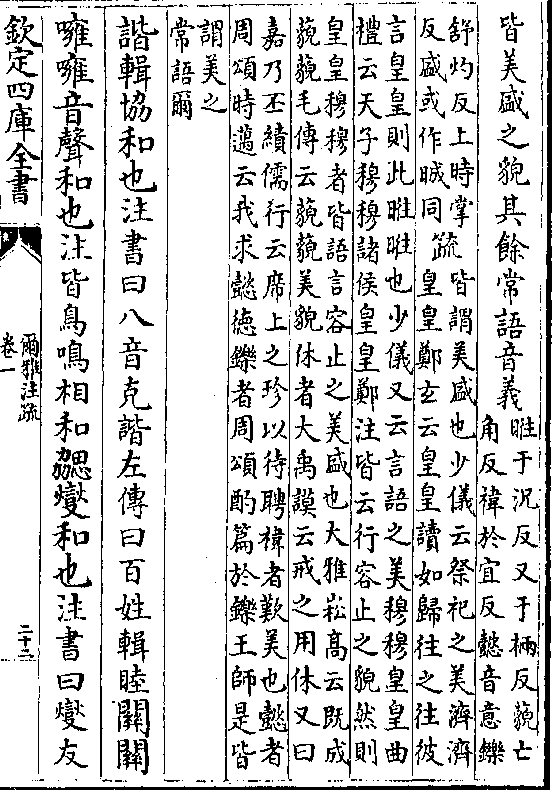 皆美盛之貌其餘常語音義
暀于況反又于柄反藐亡
角反禕於宜反懿音意鑠
舒灼反上時掌
反盛或作晠同
疏
皆謂美盛也少儀云祭祀之美濟濟
皇皇鄭𤣥云皇皇讀如歸往之往彼
言皇皇則此暀暀也少儀又云言語之美穆穆皇皇曲
禮云天子穆穆諸侯皇皇鄭注皆云行容止之貌然則
皇皇穆穆者皆語言容止之美盛也大雅崧高云既成
藐藐毛傳云藐藐美貌休者大禹謨云戒之用休又曰
嘉乃丕績儒行云席上之珍以待聘禕者歎美也懿者
周頌時邁云我求懿德鑠者周頌酌篇於鑠王師是皆
謂美之
常語爾
諧輯協和也注書曰八音克諧左傳曰百姓輯睦關關
噰噰音聲和也注皆鳥鳴相和勰燮和也注書曰燮友
欽定四庫全書
爾雅注疏
卷一
二十二